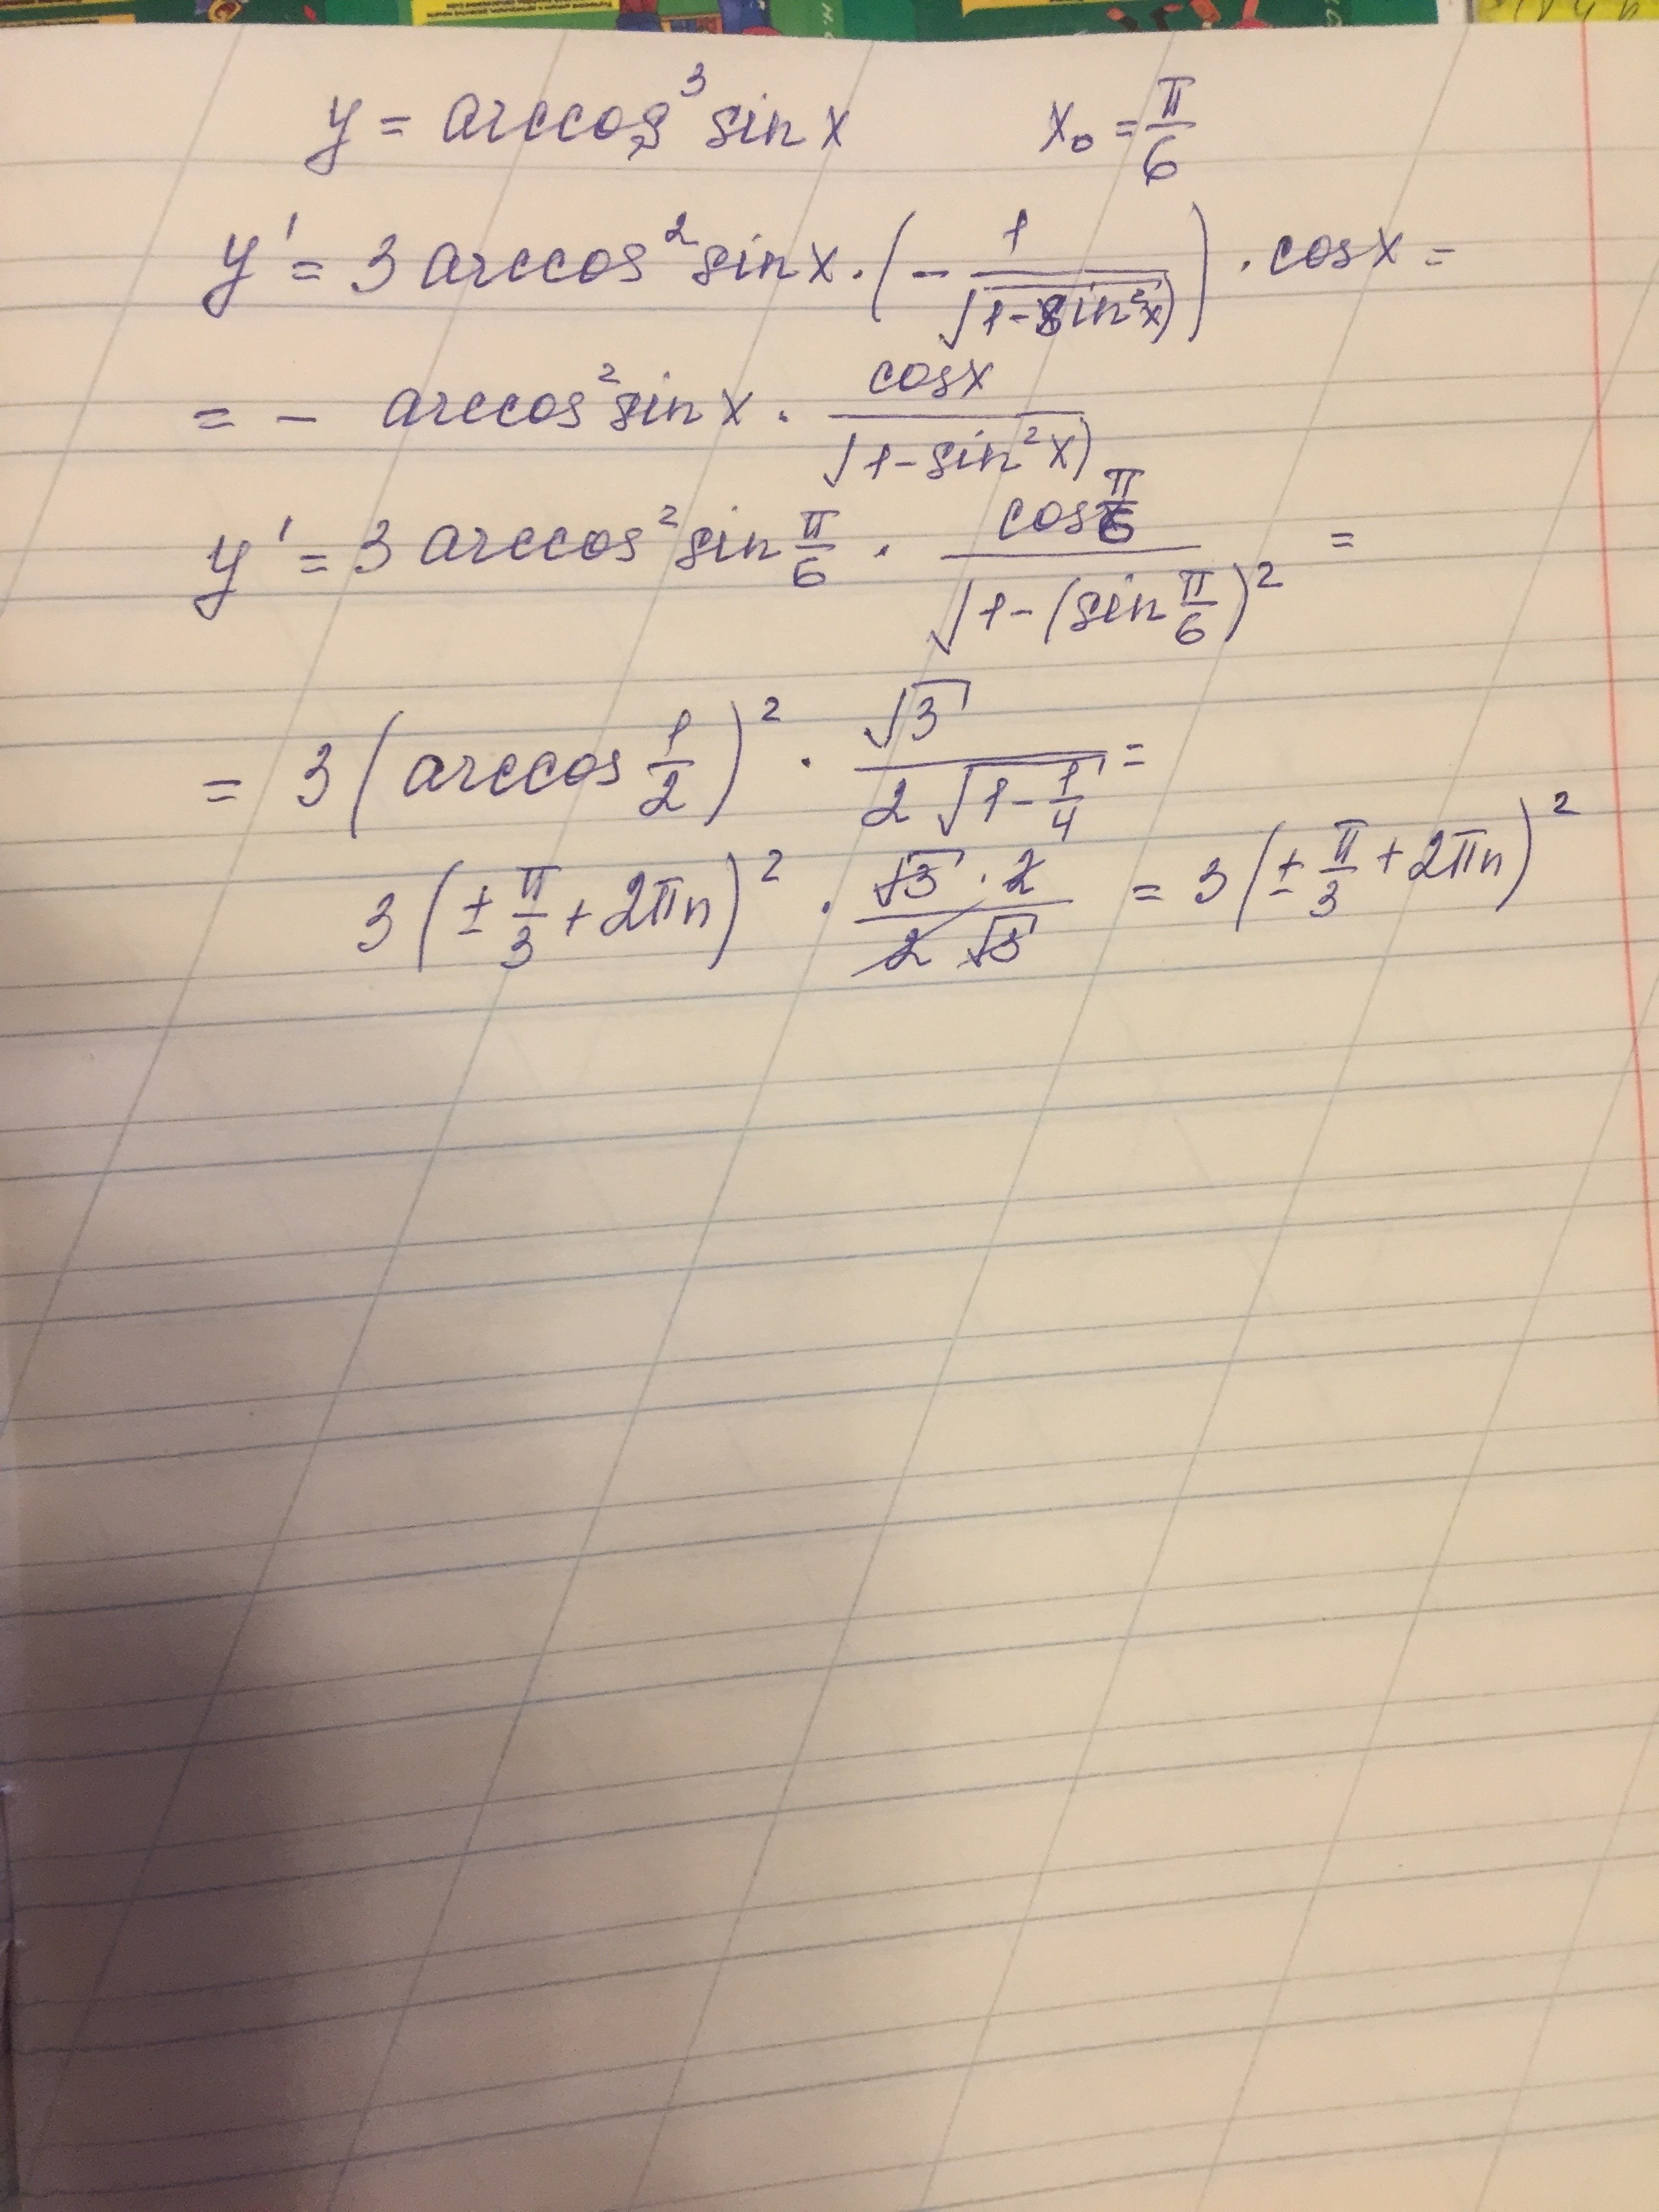 y = arccos³ sin x     x₀ = π/6
y' = 3 arccos² sin x · (− 1/√(1−sin²x)) · cos x =
= − arccos² sin x · cos x/√(1−sin²x)
y' = 3 arccos² sin π/6 · cos π/6 / √(1−(sin π/6)²) =
= 3 (arccos 1/2)² · √3 / (2√(1−1/4)) =
3 (± π/3 + 2πn)² · (√3 · 2)/(2√3) = 3 (± π/3 + 2πn)²